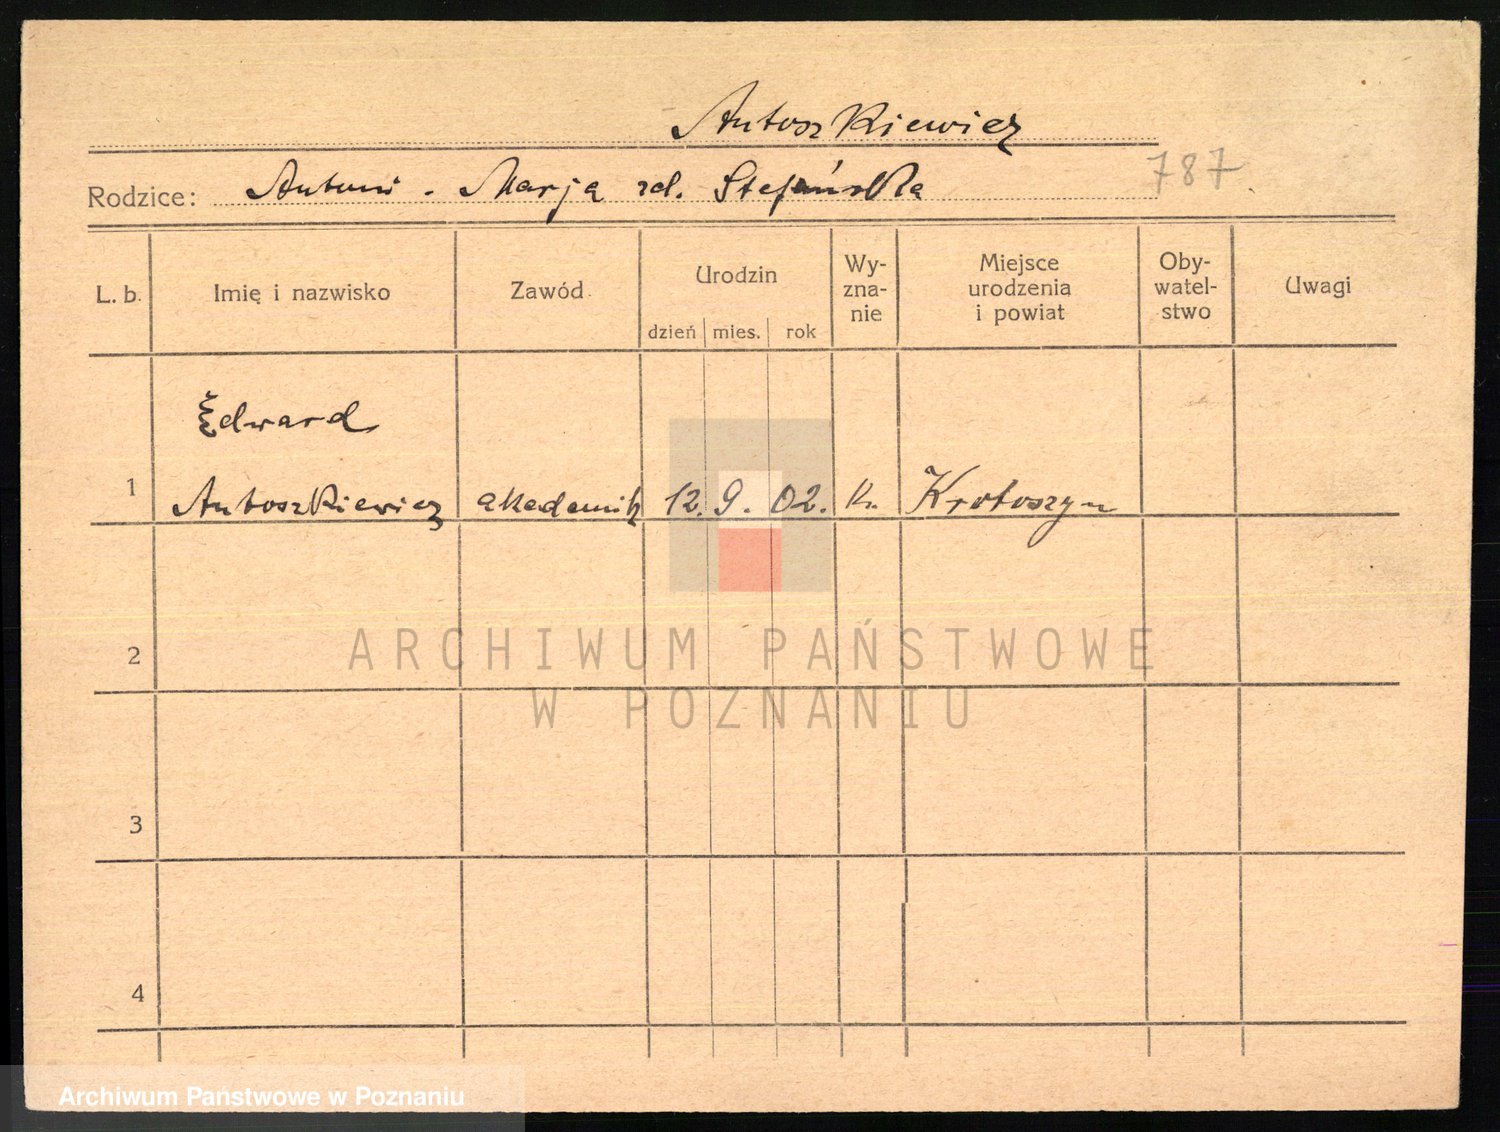 Antoszkiewicz
787
Rodzice: Antoni - Marja zd. Stefańska
L. b. Imię i nazwisko Zawód Urodzin Wy-zna-nie Miejsce urodzenia i powiat Oby-watel-stwo Uwagi
dzień mies. rok
Edward
1 Antoszkiewicz akademik 12. 9. 02. Kr. Krotoszyn
2
ARCHIWUM PAŃSTWOWE
W POZNANIU
3
4
Archiwum Państwowe w Poznaniu